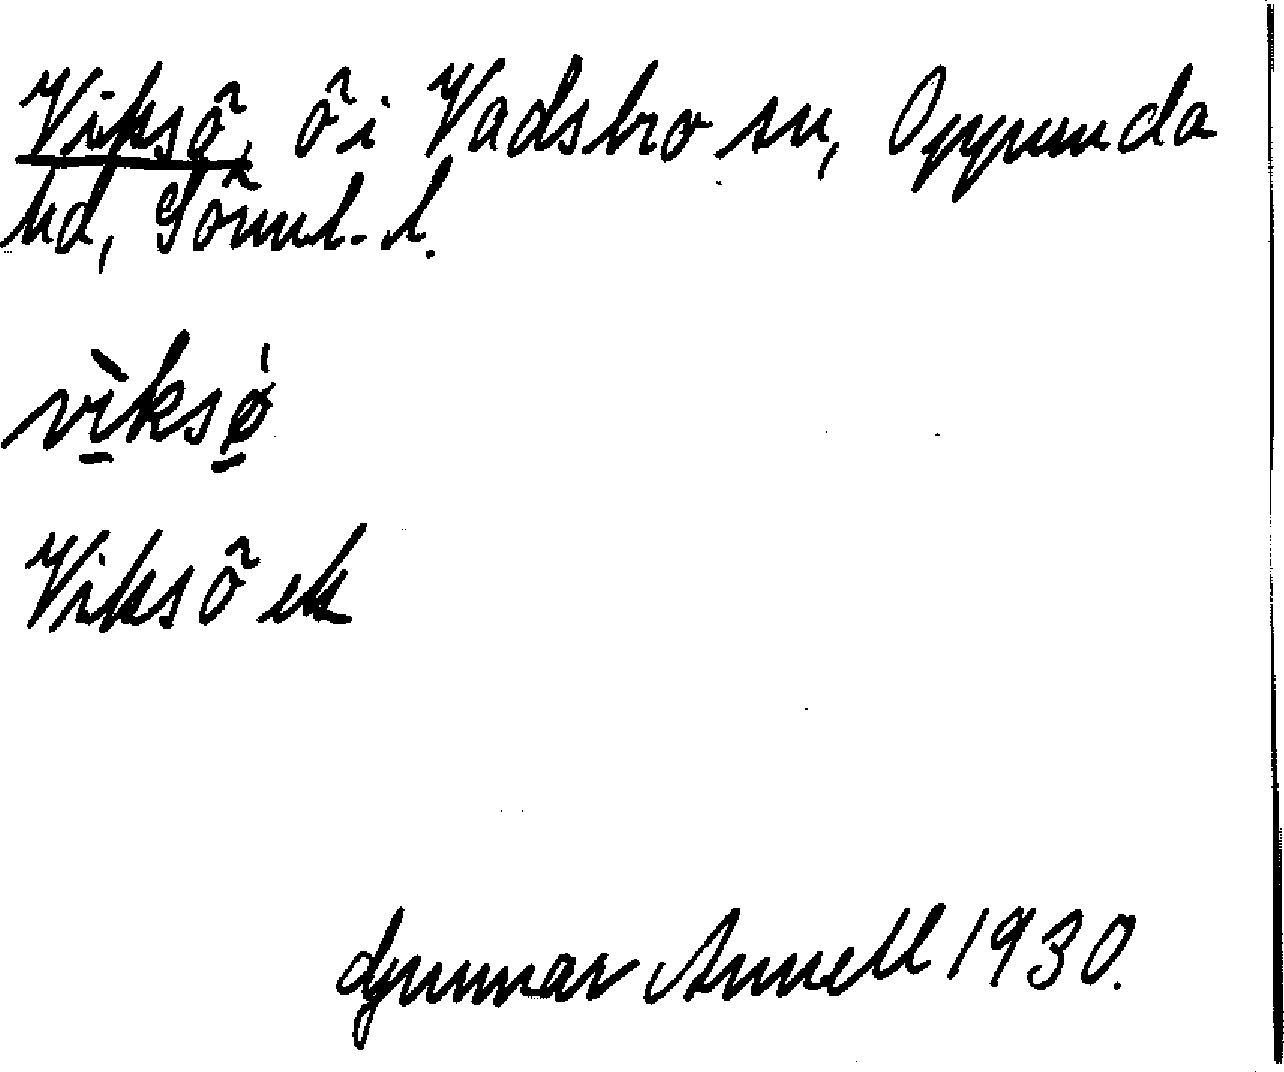 Viksö, ö i Vadsbro sn, Oppunda
hd, Sörml. l.
vìksø̀
Viksö ek
Gunnar Annell 1930.